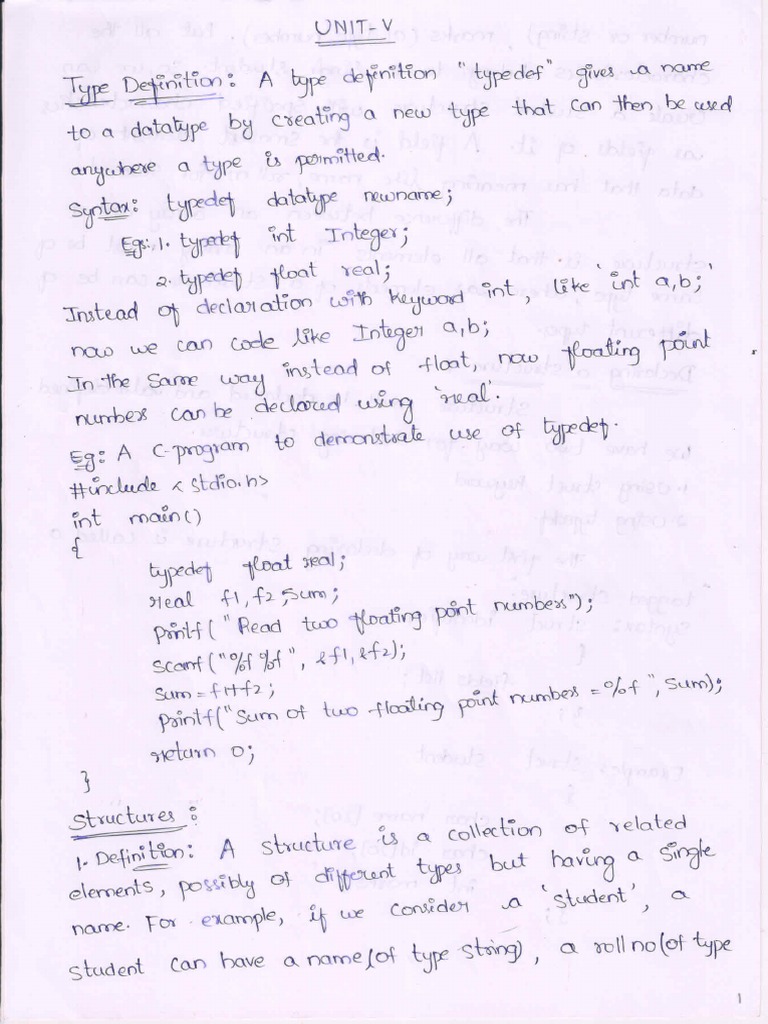 UNIT-V
Type Definition: A type definition "typedef" gives a name
to a datatype by creating a new type that can then be used
anywhere a type is permitted.
Syntax: typedef datatype newname;
Eg:- 1. typedef int Integer;
2. typedef float real;
Instead of declaration with keyword int, like 'int a,b;'
now we can code like Integer a,b;
In the same way instead of float, now floating point
numbers can be declared using 'real'.
Eg: A C-program to demonstrate use of typedef.
#include < stdio.h>
int main()
{
typedef float real;
real f1, f2, sum;
printf("Read two floating point numbers");
scanf("%f%f", &f1, &f2);
sum = f1+f2;
printf("Sum of two floating point numbers = %f", sum);
return 0;
}
Structures:
1. Definition: A structure is a collection of related
elements, possibly of different types but having a single
name. For example, if we consider a 'student', a
student can have a name(of type string), a roll no(of type
1